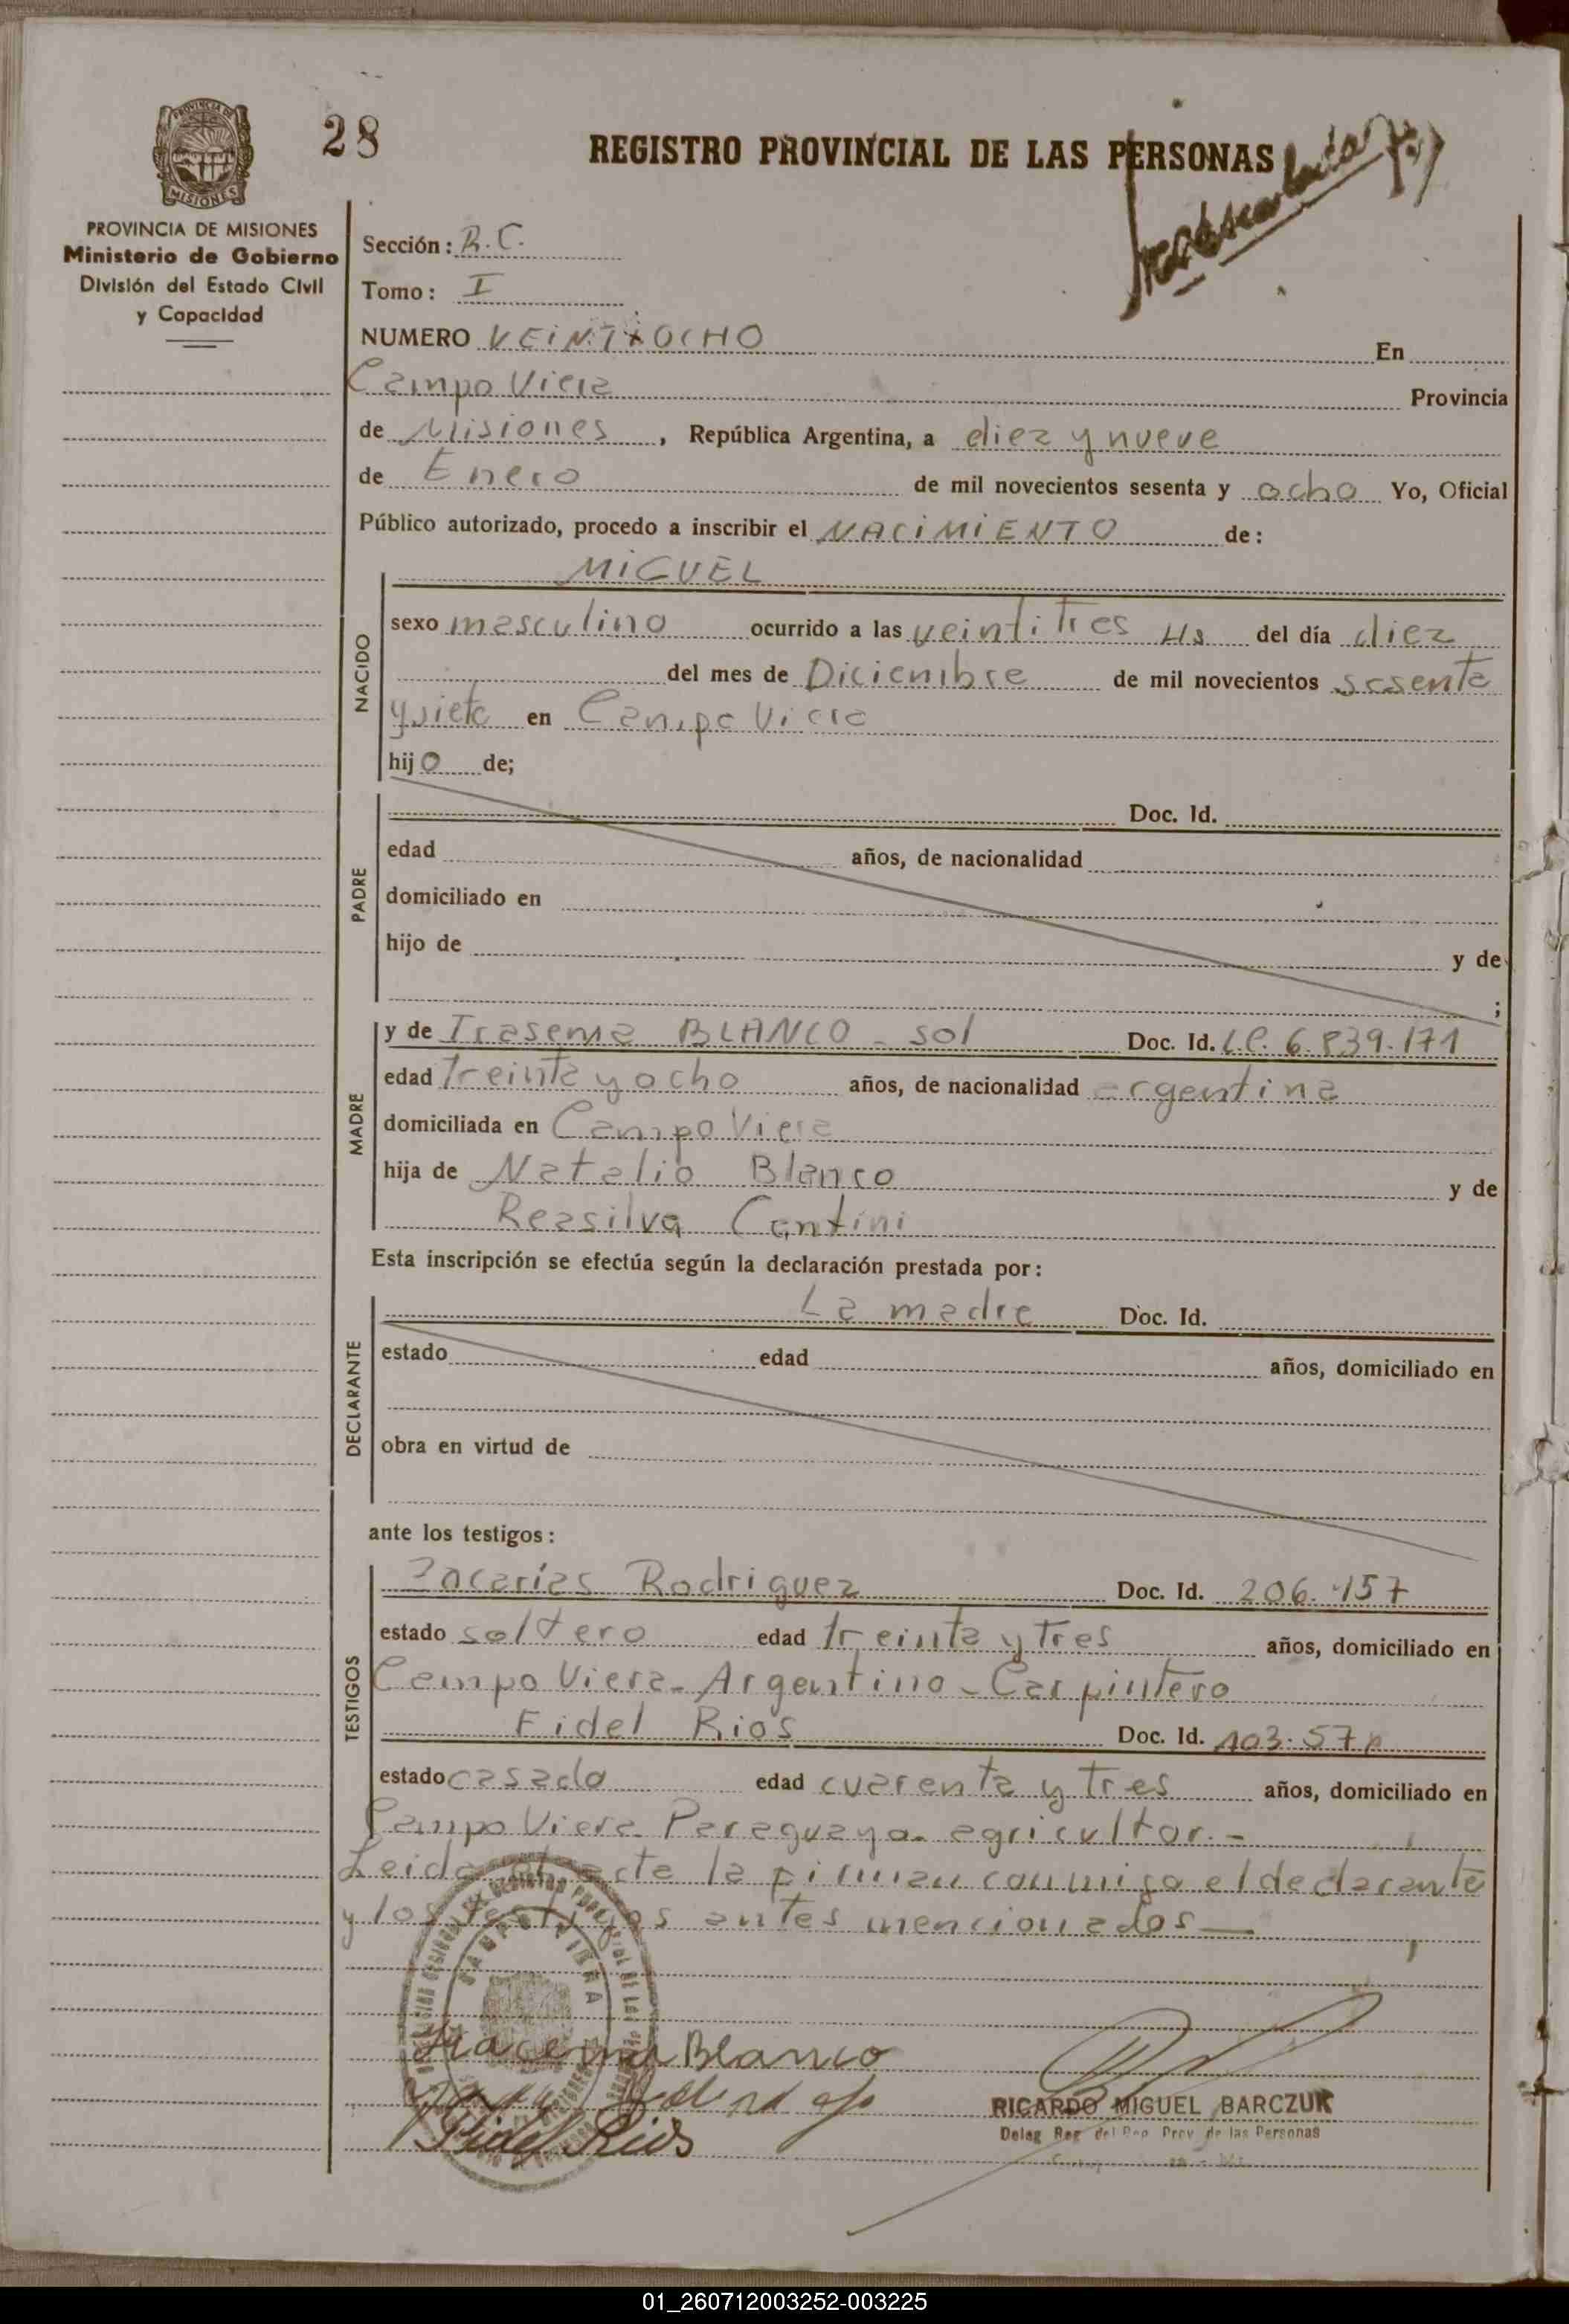 28
REGISTRO PROVINCIAL DE LAS PERSONAS
PROVINCIA DE MISIONES
Ministerio de Gobierno
División del Estado Civil
y Capacidad
Sección: R.C.
Tomo: I
NUMERO VEINTIOCHO En
Campo Viera Provincia
de Misiones, República Argentina, a diez y nueve
de Enero de mil novecientos sesenta y ocho Yo, Oficial
Público autorizado, procedo a inscribir el NACIMIENTO de:
MIGUEL
NACIDO
sexo masculino ocurrido a las veintitres Hs del día diez
del mes de Diciembre de mil novecientos sesenta
y siete en Campo Viera
hijo de;
PADRE
Doc. Id.
edad años, de nacionalidad
domiciliado en
hijo de y de
;
MADRE
y de Irasema BLANCO - sol Doc. Id. L.C. 6.839.171
edad treinta y ocho años, de nacionalidad argentina
domiciliada en Campo Viera
hija de Natalio Blanco y de
Reasilva Cantini
Esta inscripción se efectúa según la declaración prestada por:
DECLARANTE
La madre Doc. Id.
estado edad años, domiciliado en
obra en virtud de
ante los testigos:
TESTIGOS
Zacarías Rodriguez Doc. Id. 206.157
estado soltero edad treinta y tres años, domiciliado en
Campo Viera - Argentino - Carpintero
Fidel Rios Doc. Id. 103.57
estado casado edad cuarenta y tres años, domiciliado en
Campo Viera Paraguayo - agricultor. -
Leida el acta la firman conmigo el declarante
y los testigos antes mencionados —
Iracema Blanco
Fidel Rios
RICARDO MIGUEL BARCZUK
Deleg Reg del Reg Prov de las Personas
01_260712003252-003225